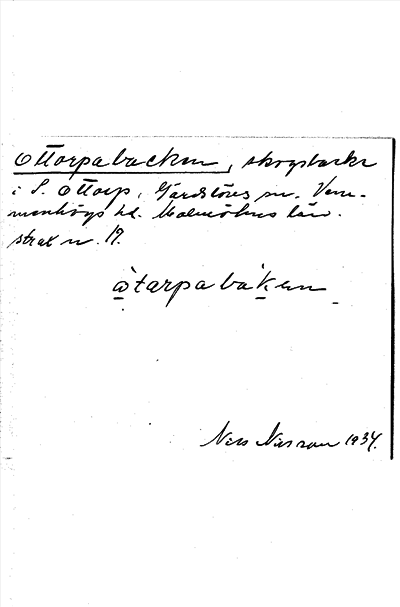 Ottarpabacken, skogsbacke
i S. Ottarp, Gärdslövs sn. Vem-
menhögs hd. Malmöhus län.
strax n. 19.
àtarpabàken
Nils Nilsson 1934.